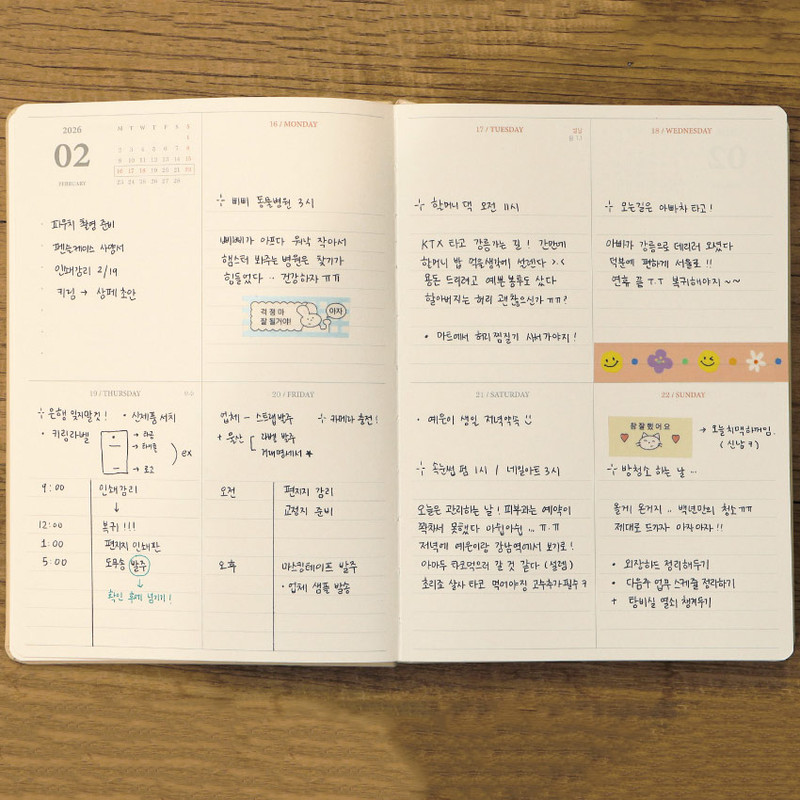 2026
02
FEBRUARY
M T W T F S S
1
2 3 4 5 6 7 8
9 10 11 12 13 14 15
16 17 18 19 20 21 22
23 24 25 26 27 28
파우치 촬영 준비
펜슬케이스 사양서
인쇄감리 2/19
키링 → 상페 초안
16 / MONDAY
삐삐 동물병원 3시
삐삐가 아프다 워낙 작아서
햄스터 봐주는 병원은 찾기가
힘들었다 .. 건강하자 ㅠㅠ
걱정 마
잘 될거야!
아자
17 / TUESDAY
설날
음 1.1
할머니 댁 오전 11시
KTX 타고 강릉가는 길! 간만에
할머니 밥 먹을생각에 신난다 >.<
용돈 드리려고 예쁜 봉투도 샀다
할아버지는 허리 괜찮으신가 ㅠㅠ?
• 마트에서 허리찜질기 사서가야지!
18 / WEDNESDAY
오는길은 아빠차 타고!
아빠가 강릉으로 데리러 오셨다
덕분에 편하게 서울로!!
연휴 끝 T.T 복귀해야지 ~~
19 / THURSDAY
우수
은행 잊지말것! • 신제품 서치
• 키링라벨
→ 타공
→ 로고
ex
9:00 인쇄감리
↓
12:00 복귀!!!
1:00 편지지 인쇄판
5:00 도무송 발주
↓
확인 후에 넘기기!
20 / FRIDAY
업체 – 스트랩발주 카메라 충전!
+ 울산 라벨 발주
거래명세서 ★
오전 편지지 감리
교정지 준비
오후 마스킹테이프 발주
• 업체 샘플 발송
21 / SATURDAY
• 예은이 생일 저녁약속
속눈썹 펌 1시 / 네일아트 3시
오늘은 관리하는 날! 피부과는 예약이
꽉차서 못했다 아쉽아쉽 ... ㅠ.ㅠ
저녁에 예은이랑 강남역에서 보기로!
아마두 타코먹으러 갈 것 같다 (설렘)
초리조 살사 타코 먹어야징 고수추가필수 ㅋ
22 / SUNDAY
참잘했어요
→ 오늘치맥하꺼임.
(신남ㅋ)
방청소 하는 날 ...
올게 온거지 .. 백년만의 청소ㅠㅠ
제대로 드가자 아자아자!!
• 외장하드 정리해두기
• 다음주 업무 스케쥴 정리하기
+ 탕비실 열쇠 챙겨두기